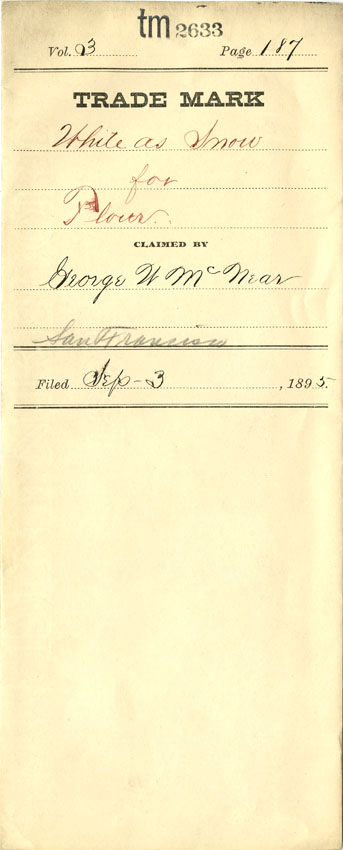 tm 2633
Vol. 3 Page 187
TRADE MARK
White as Snow
for
Flour.
CLAIMED BY
George W McNear
San Francisco
Filed Sep - 3, 1895.